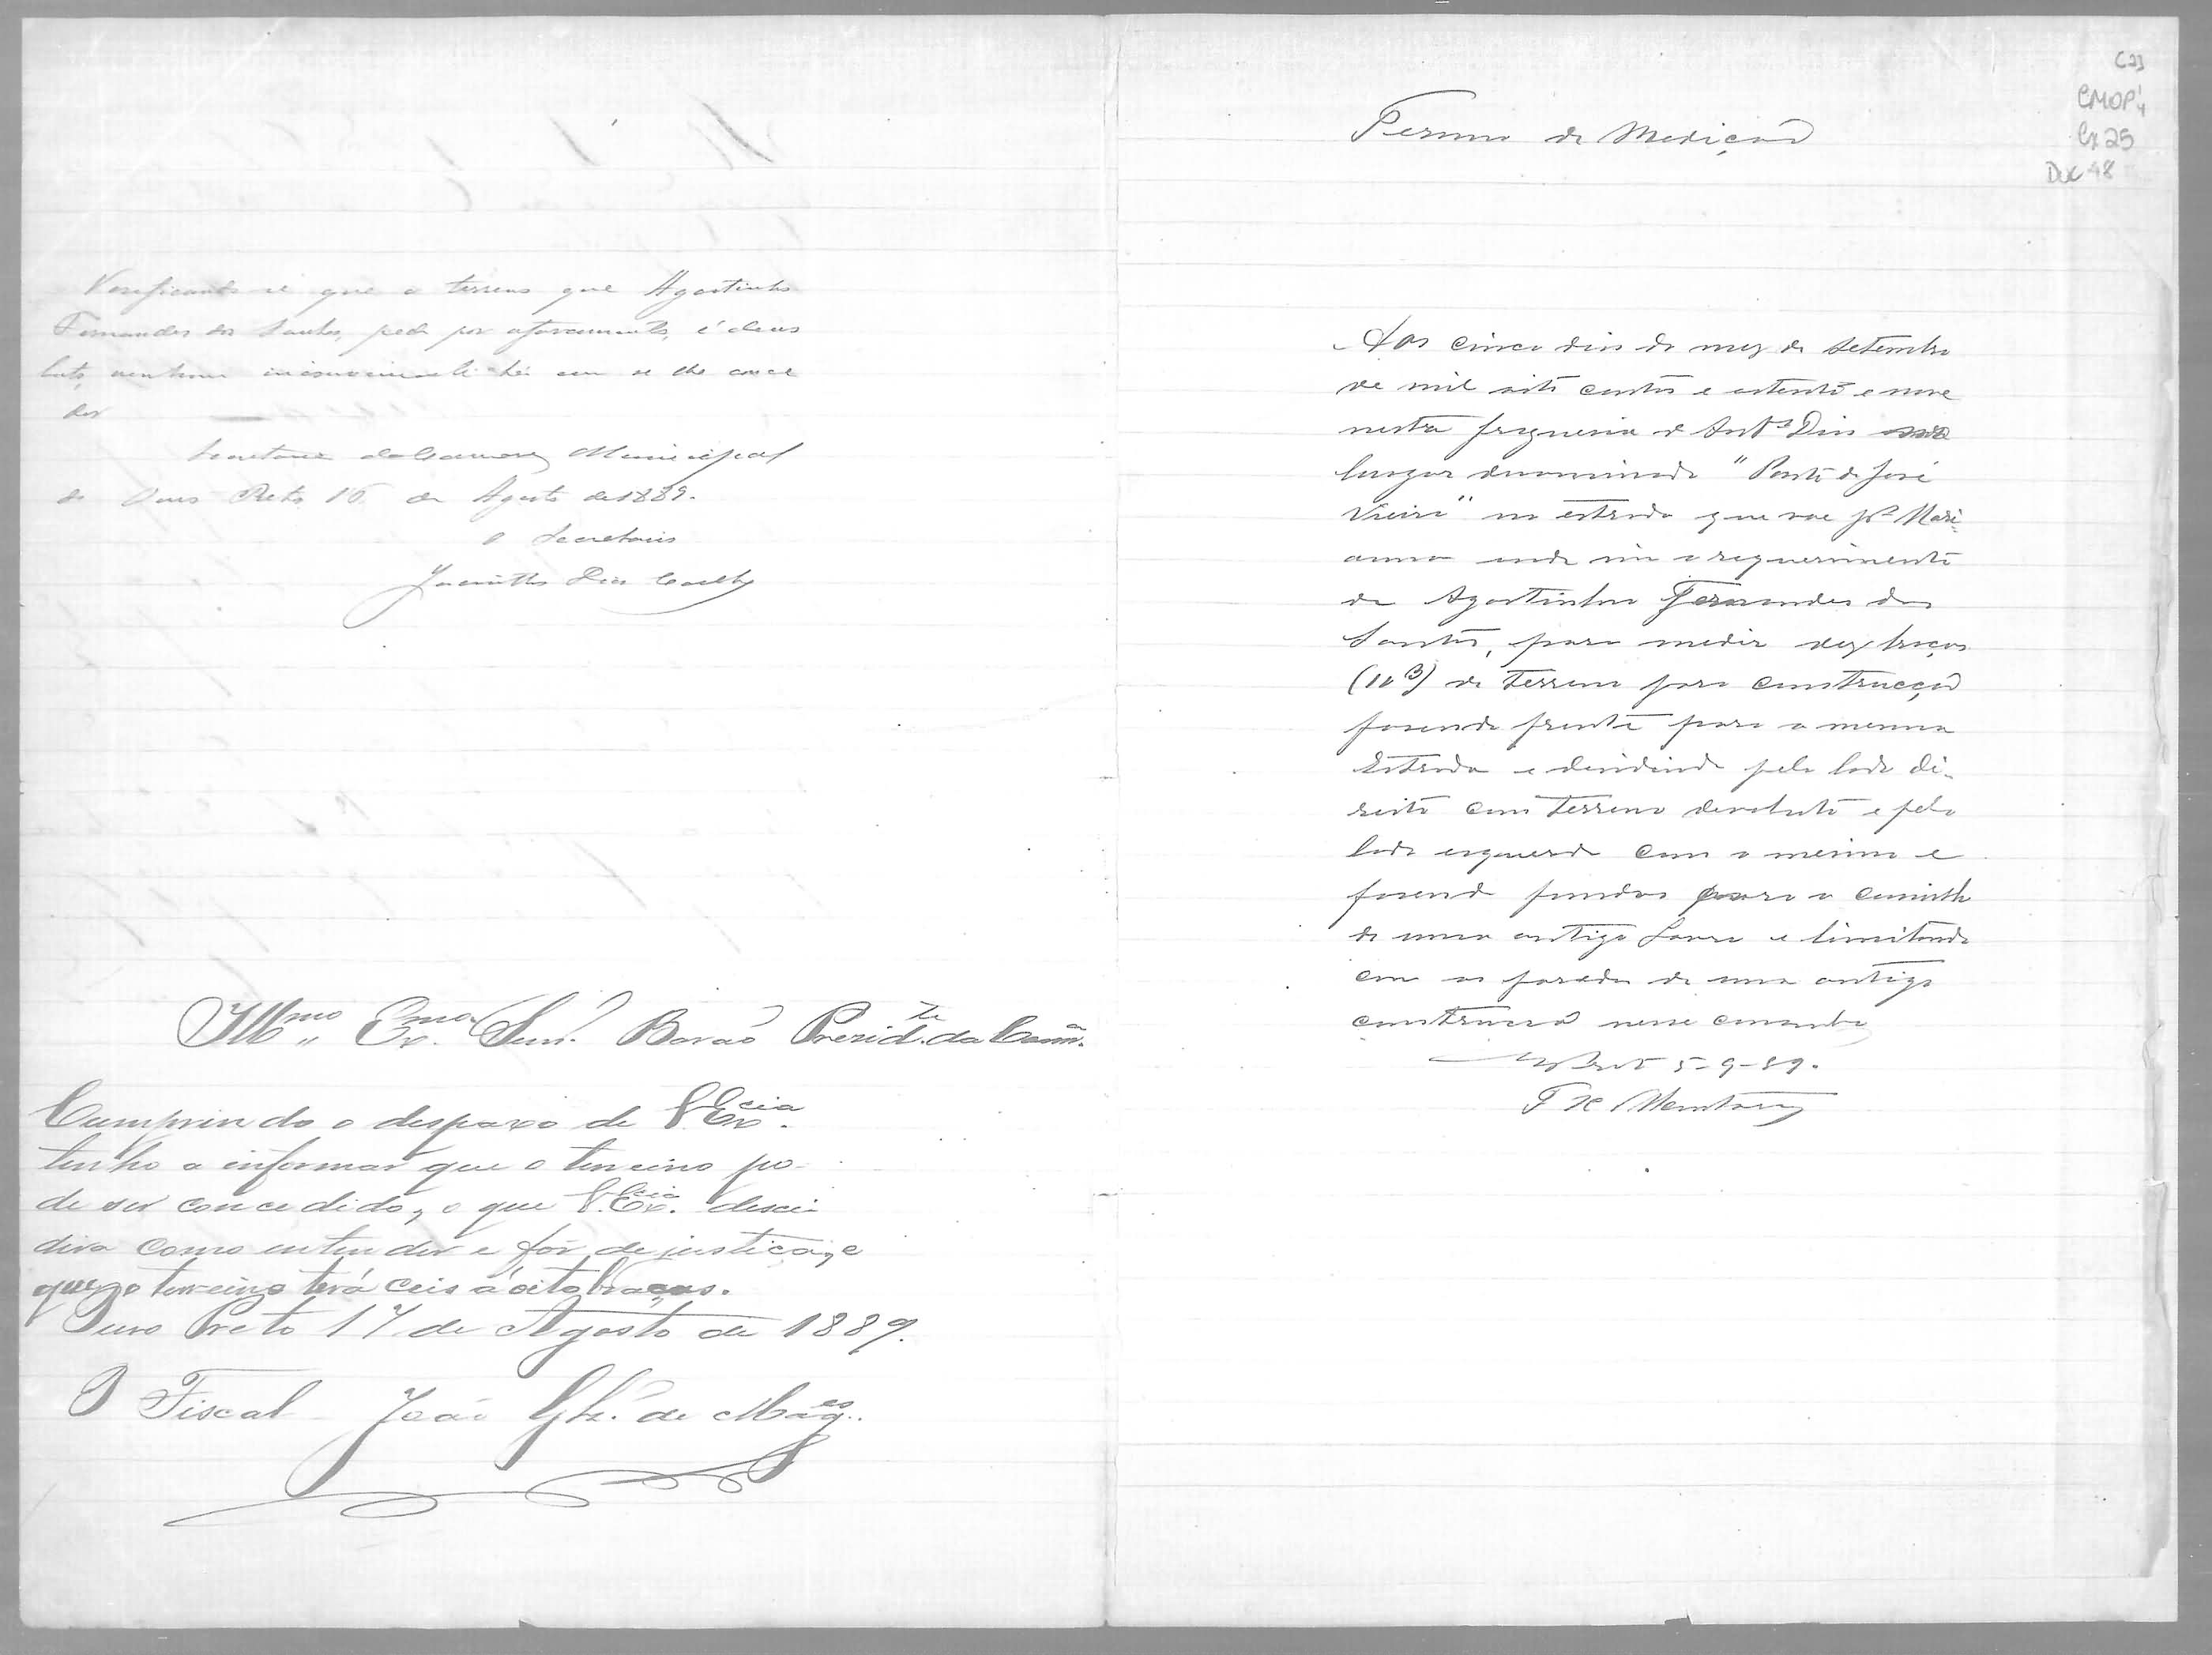 Verificando-se que o terreno que Agostinho
Fernandes dos Santos, pede por aforamento, é devo
luto, nenhum inconveniente há em se lhe conce
der
Secretaria da Camara Municipal
de Ouro Preto 16 de Agosto de 1889.
O Secretario
Jacintho Dias Coelho
Illmo Exmo Senr. Barão Presid.te da Camª.
Cumprindo o despaxo de V. Excia.
tenho a informar que o terreino po-
de ser concedido, o que V. Excia. desci-
dira como entender e fôr de justiça, e
que o terreino terá ceis á oito braças.
Ouro Preto 17 de Agosto de 1889.
O Fiscal João Glz. de Mag.es
C23
CMOP
Cx 25
Doc 48
Termo de Medição
Aos cinco dias do mez de Setembro
de mil oito centos e oitenta e nove
nesta freguesia de Antº Dias
lugar denominado "Ponte de José
Vieira" na estrada que vae pª Mari-
anna onde vim a requerimento
de Agostinho Fernandes dos
Santos, para medir dez braças
(10 B) de terreno para construcção
fasendo frente para a mesma
Estrada e dividindo pelo lado di-
reito com terreno devoluto e pelo
lado esquerdo com o mesmo e
fasendo fundos para o caminho
de uma antiga Lavra e limitando
com as paredes de uma antiga
construcção nesse caminho
Ouro Preto 5-9-89.
F X Monteiro